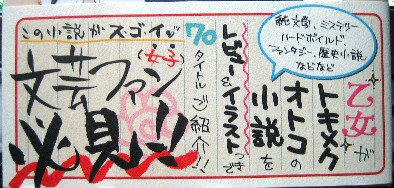 純文学、ミステリー
ハードボイルド、
ファンタジー、歴史小説
などなど
乙女が
トキメク
オトコの
小説を
レビュー&イラストつきで
70
タイトルご紹介!!
この小説がスゴイ!
文芸ファン
(女子)
必見!!